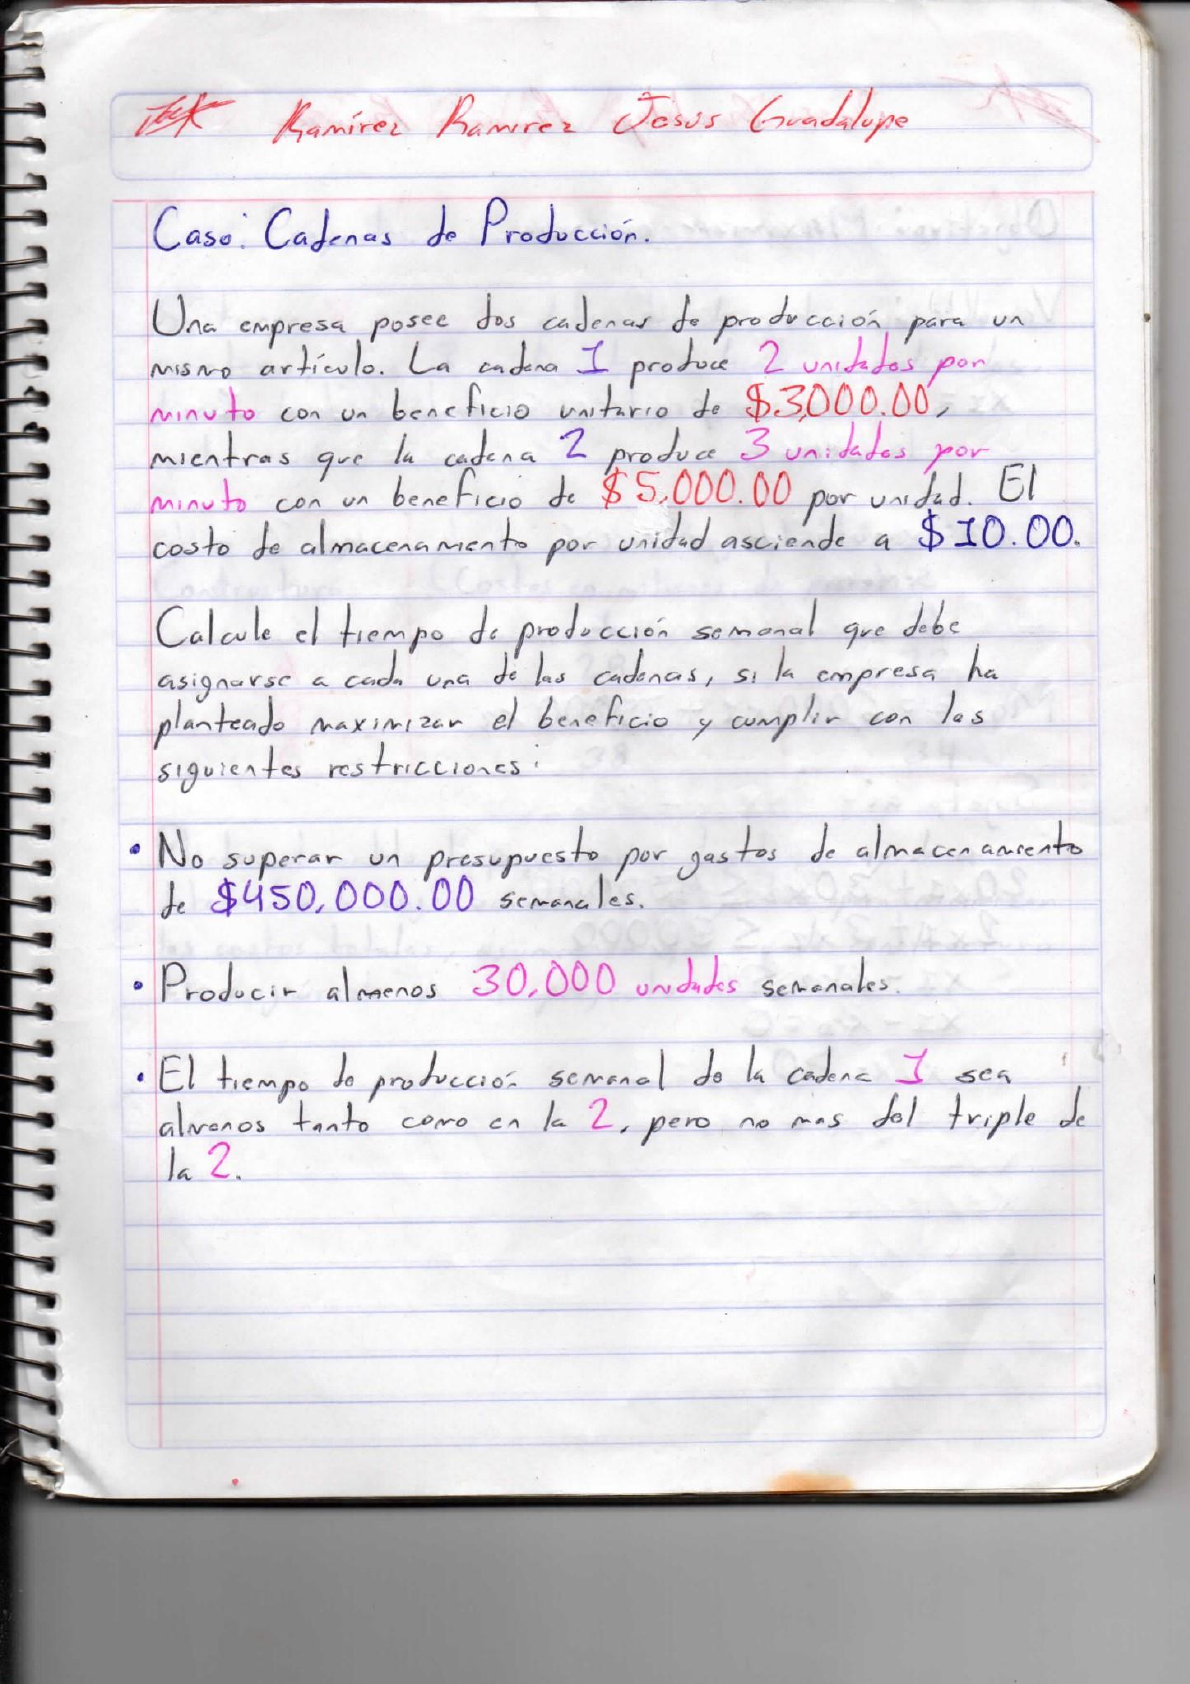 Ramírez Ramirez Jesús Guadalupe
Caso: Cadenas de Producción.
Una empresa posee dos cadenas de producción para un
mismo artículo. La cadena 1 produce 2 unidades por
minuto con un beneficio unitario de $3,000.00,
mientras que la cadena 2 produce 3 unidades por
minuto con un beneficio de $5,000.00 por unidad. El
costo de almacenamiento por unidad asciende a $10.00.
Calcule el tiempo de producción semanal que debe
asignarse a cada una de las cadenas, si la empresa ha
planteado maximizar el beneficio y cumplir con las
siguientes restricciones:
• No superar un presupuesto por gastos de almacenamiento
de $450,000.00 semanales.
• Producir almenos 30,000 unidades semanales.
• El tiempo de producción semanal de la cadena 1 sea
almenos tanto como en la 2, pero no mas del triple de
la 2.